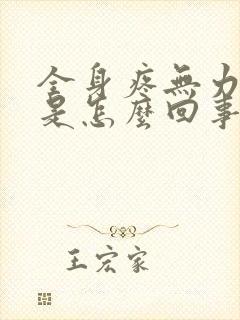 全身疼無力
是怎麼回事
王宏家